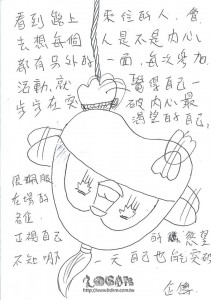 看到路上 來往的人，會
去想每個 人是不是內心
都有另外的 一面，每次參加
活動，就 覺得自己一
步步在突 破內心最
渴望的自己，
很佩服
在場的
各位
正視自己 的 慾望
不知哪 一天自己也能突破